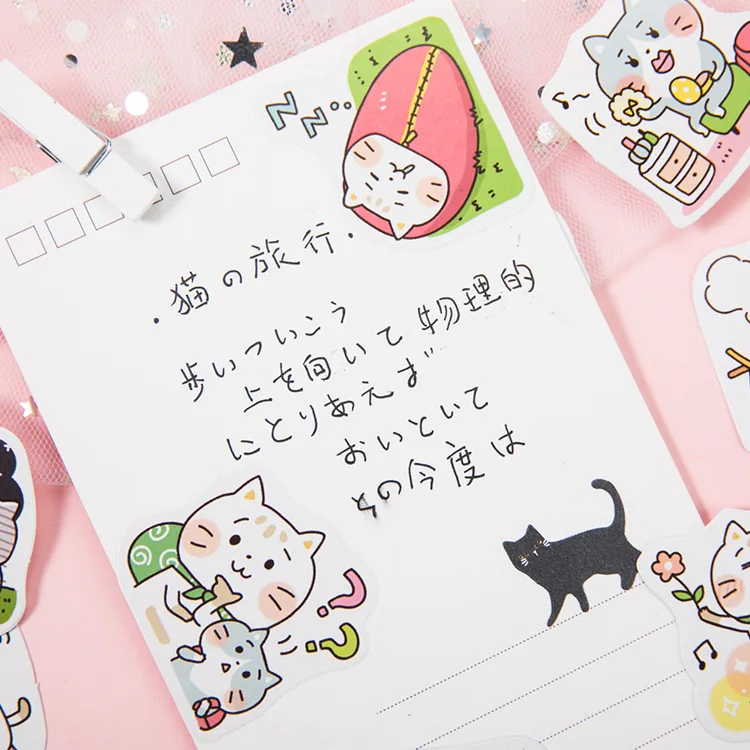 ZZ..
.猫の旅行.
歩いついこう
上を向いて物理的
にとりあえず
おいといて
その今度は
??